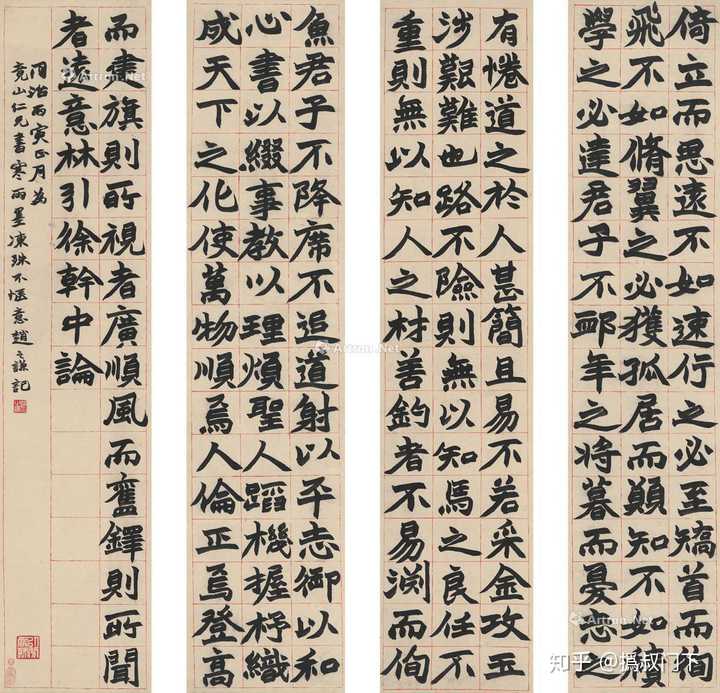 倚立而思遠不如速行之必至矯首而徇
飛不如脩翼之必獲孤居而願知不如積
學之必達君子不卹年之將暮而憂志之
有惓道之於人甚簡且易不若采金攻玉
涉艱難也路不險則無以知馬之良任不
重則無以知人之材善釣者不易渕而徇
魚君子不降席不追道射以平志御以和
心書以綴事教以理煩聖人蹈機握杼織
成天下之化使萬物順焉人倫正焉登高
而建旗則所視者廣順風而奮鐸則所聞
者遠意林引徐幹中論
同治丙寅正月為
竟山仁兄書寒雨墨凍殊不愜意趙之謙記
Artron.Net
Artron.Net
知乎 @撝叔门下